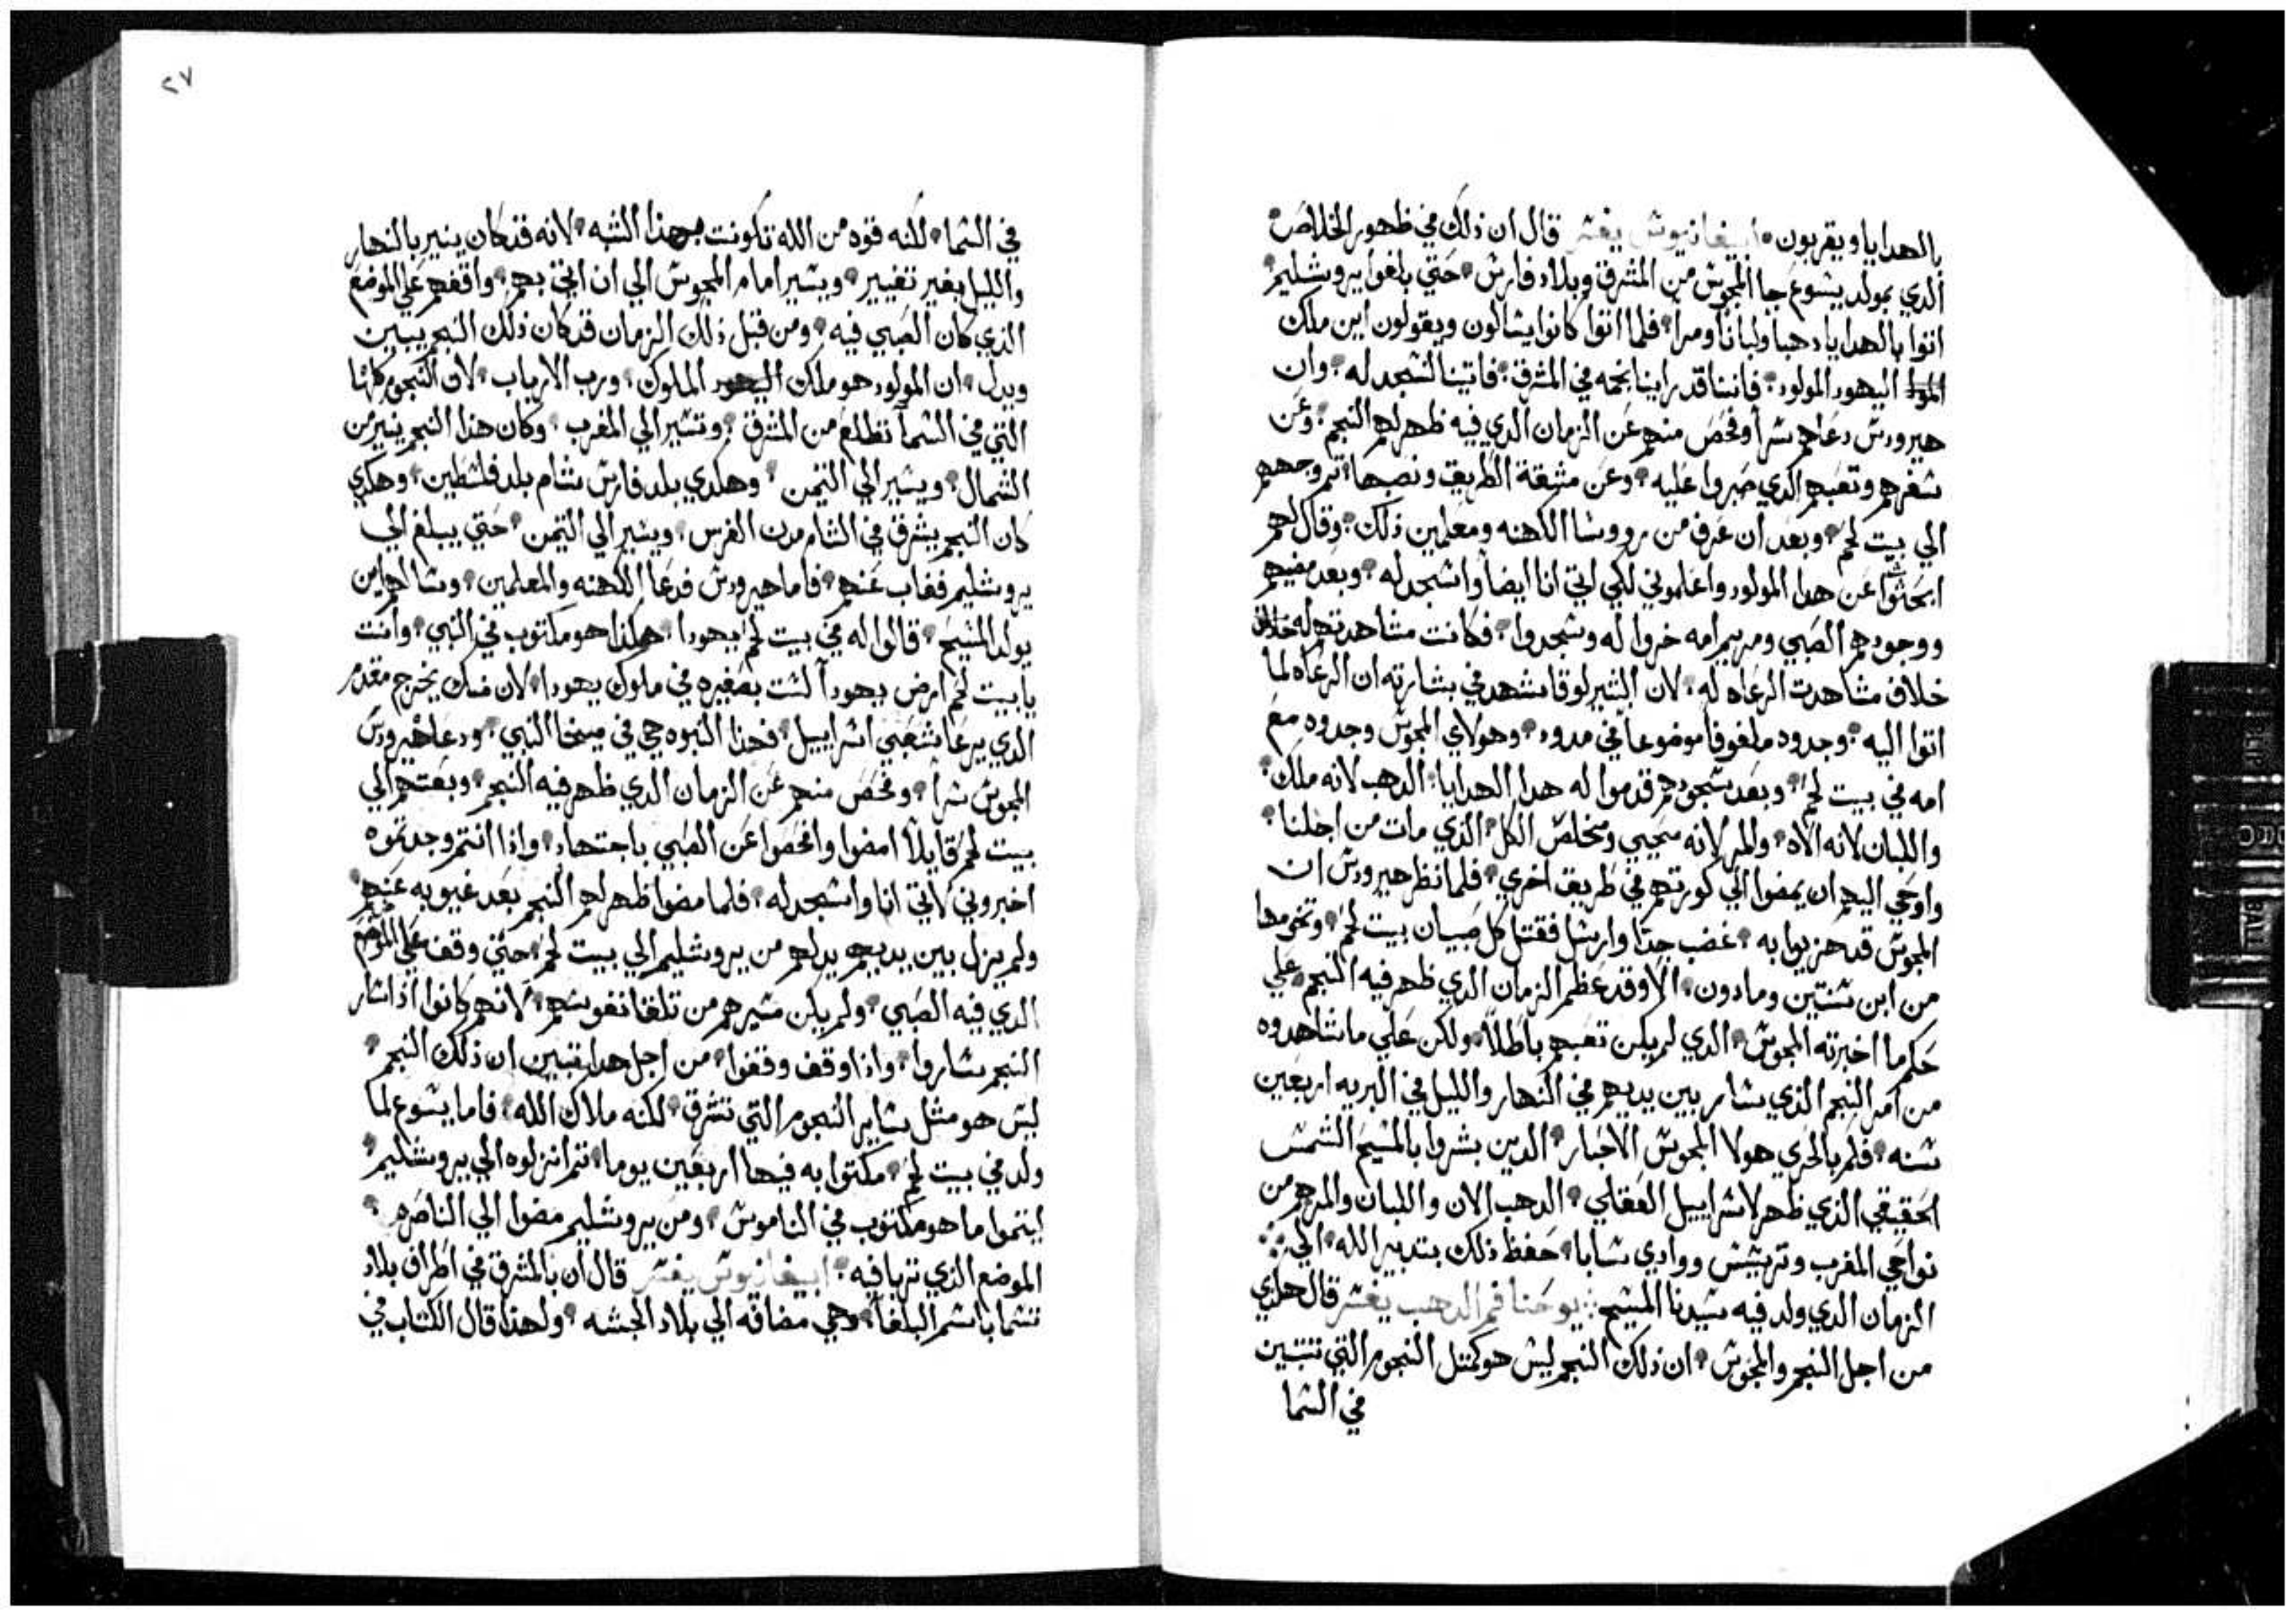 بالهدايا ويقربون ابيفانيوش يفسر قال ان ذلك في ظهور الخلاص
الدي بمولد يشوع جا المجوش من المشرق وبلاد فارش حتي بلغوا يروشليم
اتوا بالهدايا دهبا ولبانا ومرا فلما اتوا كانوا يشالون ويقولون اين ملك
اليهود المولود فاننا قد راينا نجمه في المشرق فاتينا لنشجد له وان
هيرودش دعاهم شرا وفحص منهم عن الزمان الدي فيه ظهر لهم النجم وعن
شفرهم وتعبهم الدي صبروا عليه وعن مشقة الطريق ونصبها تم وجههم
الي بيت لحم وبعد ان عرف من رووشا الكهنه ومعلمين ذلك وقال لهم
ابحثوا عن هدا المولود واعلموني لكي اتي انا ايضا واشجد له وبعد مضيهم
ووجودهم الصبي ومريم امه خروا له وشجدوا فكانت مشاهدتهم له خلاف
خلاف مشاهدت الرعاه له لان البشير لوقا شهد في بشارته ان الرعاه لما
اتوا اليه وجدوه ملفوفا موضوعا في مدود وهولاي المجوش وجدوه مع
امه في بيت لحم وبعد شجودهم قدموا له هدا الهدايا الدهب لانه ملك
واللبان لانه الاه والمر لانه محيي ومخلص الكل الذي مات من اجلنا
واوحي اليهم ان يمضوا الي كورتهم في طريق اخري فلما نظر هيرودش ان
المجوش قد هزيوا به غضب جدا وارشل فقتل كل صبيان بيت لحم وتخومها
من ابن شنتين وما دون الا وقد عظم الزمان الدي ظهر فيه النجم علي
حكم ما اخبرته المجوش الدي لم يكن تعبهم باطلا ولكن علي ما شاهدوه
من امر النجم الذي شار بين يديهم في النهار والليل في البريه اربعين
شنه فلم بالحري هولا المجوش الاخبار الدين بشروا بالمشيح الشمش
الحقيقي الذي ظهر لاشراييل العقلي الدهب الان واللبان والمر هم من
نواحي المغرب وترشيش ووادي شابا حفظ ذلك بتدبير الله الي
الزمان الدي ولد فيه شيدنا المشيح يوحنا فم الدهب يفسر قال هلدي
من اجل النجم والمجوش ان ذلك النجم ليش هو كمتل النجوم التي تتبين
في الشما
٢٧
في الشما لكنه قوه من الله تكونت بهذا الشبه لانه قد كان ينير بالنهار
والليل بغير تغيير ويشير امام المجوش الي ان اتي بهم واقفهم علي الموضع
الذي كان الصبي فيه ومن قبل ذلك الزمان قد كان ذلك النجم يبين
ويدل ان المولود هو ملك الملوك ورب الارباب لان النجوم كلها
التي في الشما تطلع من المشرق وتشير الي المغرب وكان هذا النجم ينير من
الشمال ويشير الي التيمن وهكدي بلد فارش شام بلد فلشطين وهكدي
كان النجم يشرق في الشام من الفرس ويشير الي التيمن حتي يبلغ الي
يروشليم فغاب عنهم فاما هيرودش فدعا الكهنه والمعلمين وشالهم اين
يولد المشيح قالوا له في بيت لحم يهودا هكذا هو مكتوب في النبي وانت
يا بيت لحم ارض يهودا لشت بصغيره في ملوك يهودا لان منك يخرج مقدم
الدي يرعا شعبي اشراييل فهذا النبوه هي في ميخا النبي ودعا هيرودش
المجوش شرا وفحص منهم عن الزمان الدي ظهر فيه النجم وبعتهم الي
بيت لحم قايلا امضوا وافحصوا عن الصبي باجتهاد واذا انتم وجدتموه
اخبروني لاتي انا واشجد له فلما مضوا ظهر لهم النجم بعد غيبوبه عنهم
ولم يزل بين يديهم يدلهم من يروشليم الي بيت لحم حتي وقف علي الموضع
الدي فيه الصبي ولم يكن مشيرهم من تلقا نفوشهم لانهم كانوا اذا شار
النجم شاروا واذا وقف وقفوا من اجل هدا يتبين ان ذلك النجم
ليش هو مثل شاير النجوم التي تشرق لكنه ملاك الله فاما يشوع لما
ولد في بيت لحم مكتوا به فيها اربعين يوما تم انزلوه الي يروشليم
ليتموا ما هو مكتوب في الناموش ومن يروشليم مضوا الي الناصره
الموضع الذي تربا فيه ابيفانيوش يفسر قال ان بالمشرق في اطراف بلاد
تشما باشم البلغا وهي مضافه الي بلاد الحبشه ولهذا قال الكتاب في